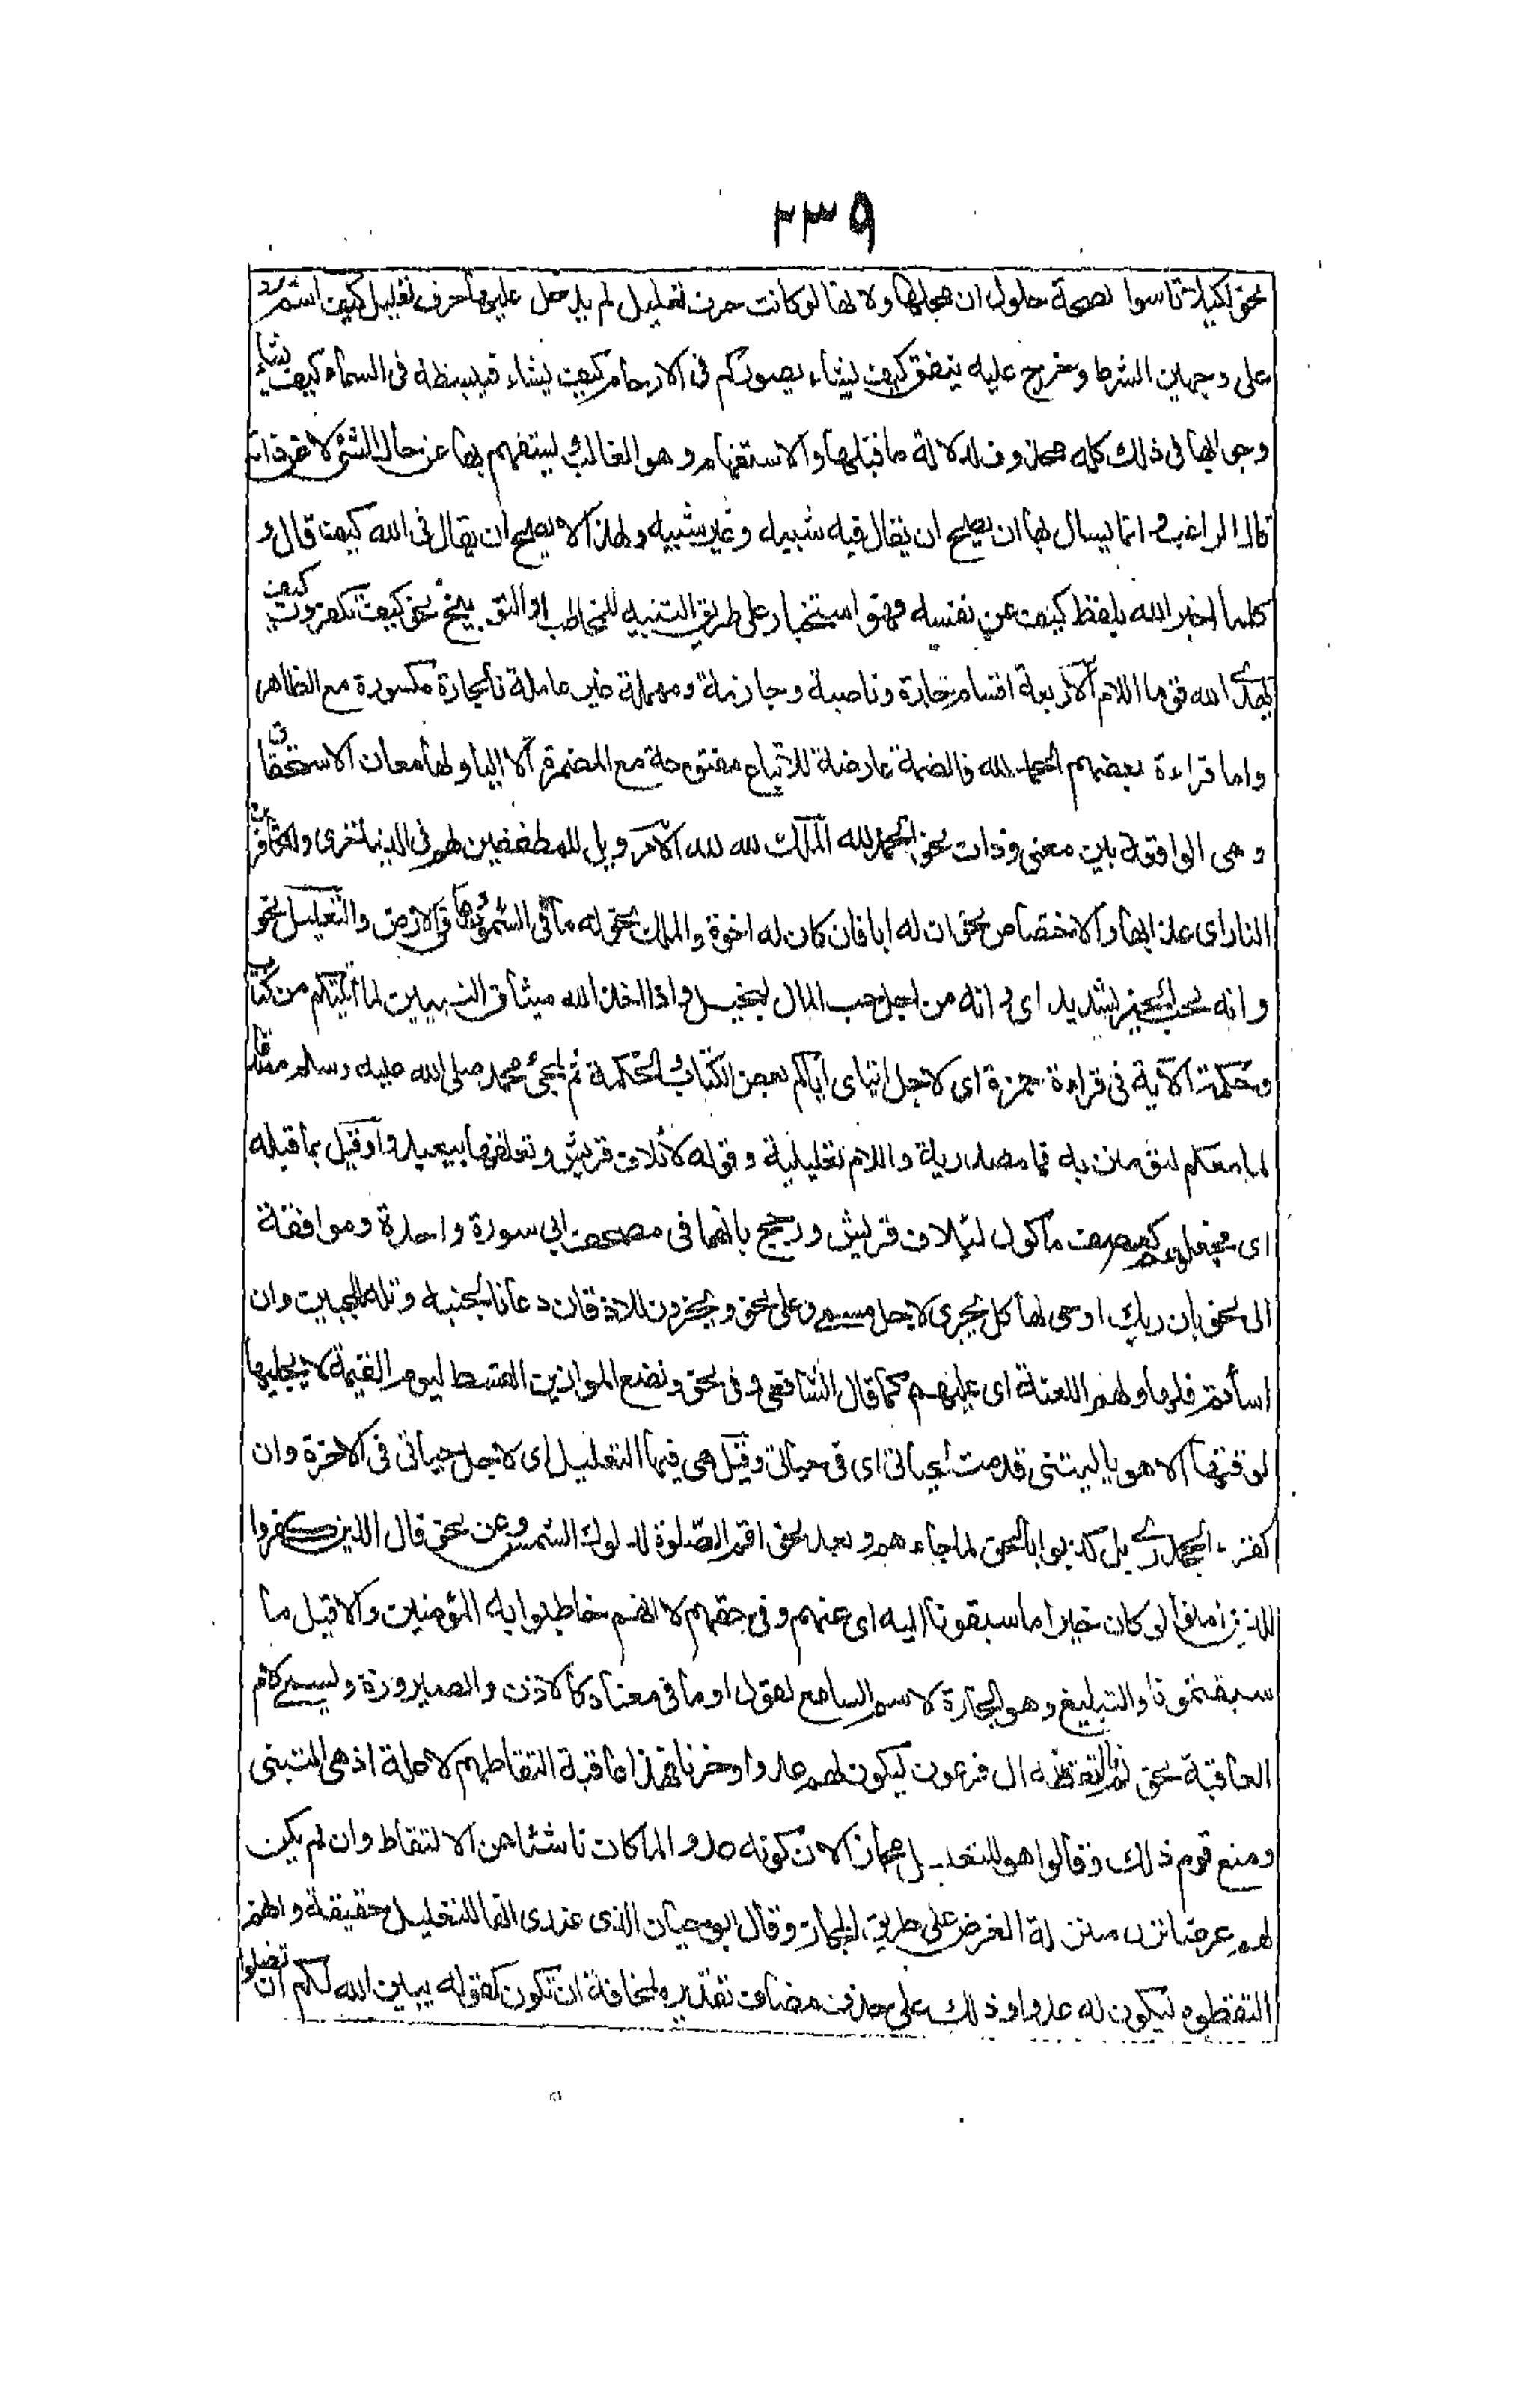 ٢٣٩
نحو لكيلا تاسوا لصحة حلول ان محلها ولانها لو كانت حرف تعليل لم يدخل عليها حرف تعليل كيف اسم يرد
على وجهين الشرط وخرج عليه ينفق كيف يشاء يصوركم فى الارحام كيف يشاء فيبسطه فى السماء كيف يشاء
وجوابها فى ذلك كله محذوف لدلالة ما قبلها والاستفهام وهو الغالب ليستفهم بها عن حال الشئ لا عن ذاته
قال الراغب وانما يسال بها ان يصلح ان يقال فيه شبيه وغير شبيه ولهذا لا يصلح ان يقال فى الله كيف قال و
كلما اخبر الله بلفظ كيف عن نفسه فهو استخبار على طريق التنبيه للمخاطب او التوبيخ نحو كيف تكفرون كيف
يهدى الله قوما اللام الاربعة اقسام جارة وناصبة وجازمة ومهملة غير عاملة فالجارة مكسورة مع الظاهر
واما قراءة بعضهم الحمد لله فالضمة عارضة للاتباع مفتوحة مع المضمر الا اليا ولها معان الاستحقاق
وهى الواقعة بين معنى وذات نحو الحمد لله الملك لله لله الامر ويل للمطففين لهم فى الدنيا خزى وللكافرين
النار اى عذابها والاختصاص نحو ان له ابا فان كان له اخوة والملك نحو له ما فى السموت وما فى الارض والتعليل نحو
وانه لحب الخير لشديد اى وانه من اجل حب المال لبخيل واذا اخذ الله ميثاق النبيين لما اتيتكم من كتاب
وحكمة الآية فى قراءة حمزة اى لاجل ايتاى اياكم بعض الكتاب والحكمة ثم لمجئ محمد صلى الله عليه وسلم مصدقا
لما معكم لتؤمنن به فما مصدرية واللام تعليلية وقوله لايلاف قريش وتعلقها بيعبدوا وقيل بما قبله
اى فجعلهم كعصف ماكول لئيلاف قريش ورجح بانهما فى مصحف ابي سورة واحدة وموافقة
الى نحو بان ربك اوحى لها كل يجرى لاجل مسمى وعلى نحو ويخرون للاذقان دعانا لجنبه وتله للجبين وان
اسأتم فلها ولهم اللعنة اى عليهم كما قال الشافعى وفى نحو ونضع الموازين القسط ليوم القيمة لا يجليها
لوقتها الا هو يا ليتنى قدمت لحياتى اى فى حياتى وقيل هى فيها للتعليل اى لاجل حياتى فى الاخرة وان
كقراءة الجحدرى بل كذبوا بالحق لما جاءهم وبعد نحو اقم الصلوة لدلوك الشمس وعن نحو قال الذين كفروا
للذين امنوا لو كان خيرا ما سبقونا اليه اى عنهم وفى حقهم لا انهم خاطبوا به المؤمنين والا قيل ما
سبقتمونا والتبليغ وهو الجارة لاسم السامع لقول او ما فى معناه كالاذن والصيرورة وليسمى لام
العاقبة نحو فالتقطه ال فرعون ليكون لهم عدوا وحزنا فهذا عاقبة التقاطهم لا علة اذ هى التبنى
ومنع قوم ذلك وقالوا هو للتعليل مجاز الان كونه عدوا لما كان ناشئا من الالتقاط وان لم يكن
لهم غرضا نزل منزلة الغرض على طريق المجاز وقال ابو حيان الذى عندى انها للتعليل حقيقة وانهم
التقطوه ليكون له عدوا وذلك على حذف مضاف تقديره لمخافة ان تكون كقوله يبين الله لكم ان تضلوا